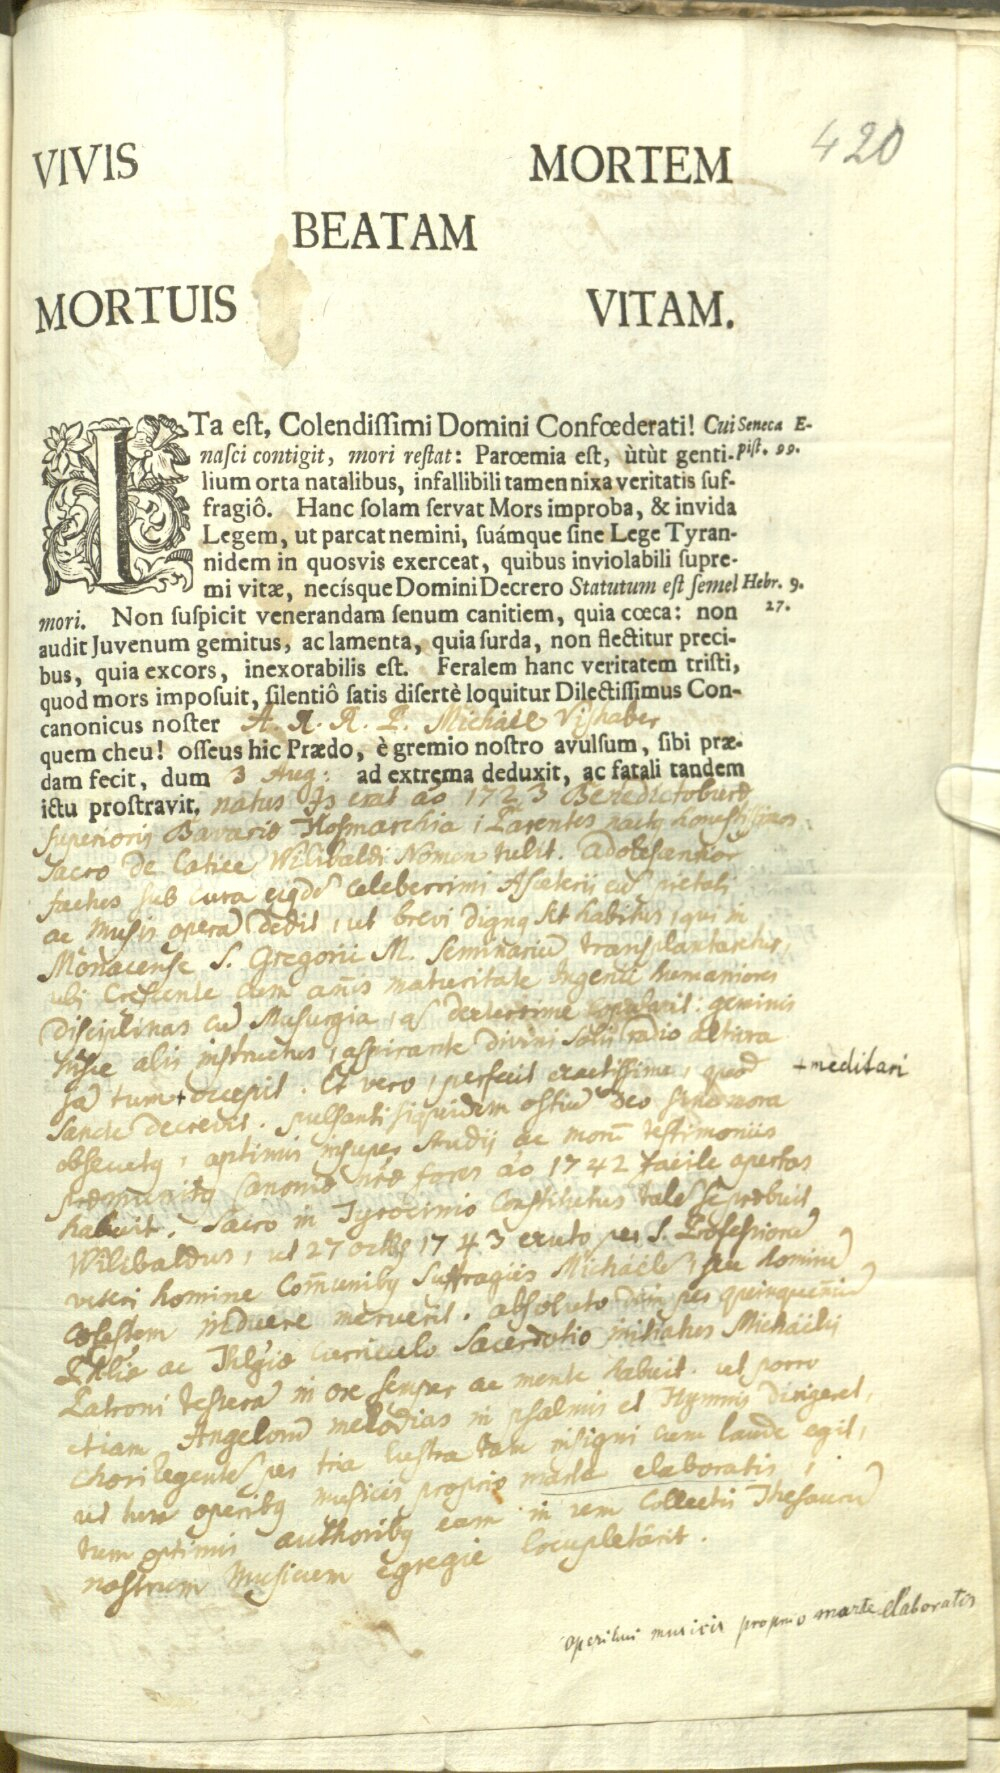 420
VIVIS MORTEM
BEATAM
MORTUIS VITAM.
ITa eſt, Colendiſſimi Domini Confœderati! Cui Seneca E-
naſci contigit, mori reſtat: Parœmia eſt, ùtùt genti- piſt. 99.
lium orta natalibus, infallibili tamen nixa veritatis ſuf-
fragiô. Hanc ſolam ſervat Mors improba, & invida
Legem, ut parcat nemini, ſuámque ſine Lege Tyran-
nidem in quosvis exerceat, quibus inviolabili ſupre-
mi vitæ, necísque Domini Decrero Statutum eſt ſemel Hebr. 9.
mori. Non ſuſpicit venerandam ſenum canitiem, quia cœca: non 27.
audit Juvenum gemitus, ac lamenta, quia ſurda, non flectitur preci-
bus, quia excors, inexorabilis eſt. Feralem hanc veritatem triſti,
quod mors impoſuit, ſilentiô ſatis diſertè loquitur Dilectiſſimus Con-
canonicus noſter A. R. R. P. Michäel Vishaber
quem cheu! oſſeus hic Prædo, è gremio noſtro avulſum, ſibi præ-
dam fecit, dum 3 Aug: ad extrema deduxit, ac fatali tandem
ictu proſtravit, natus Is erat aō 1723 Beredictoburæ
superioris Bavariæ Hofmarchia; Parentes nactq honestissimos;
sacro de Latice Wilibaldi Nomen tulit. adolescentior
factus sub cura eiqde celeberrimi Asceterii eā pietati
ac Musis operā dedit, ut brevi dignq sit habitus, qui in
Monacense S. Gregorii M. Seminariū transplantaretur,
ubi crescente cum añis maturitate Ingenii humaniores
disciplinas cū Musurgia, as dexterrime copularit: geminis
hisce alis instructus, aspirante divini Solis radio altiora
ja tum + occepit. Et vero, perfecit exactissime, quod + meditari
sancte decrevit. pulsanti siquidem ostiū Deo sine mora
obsecutq, optimis insuper studij ac morū testimoniis
præmunitq Canoniæ nræ fores aō 1742 facile apertas
habuit. Sacro in Tyrocinio Constitutus tale se probuit
Wilibaldus, ut 27 octbs 1743 exuto per S. Professionē
veteri homine Com̄unibq suffragiis Michäelē, seu hominē
cœlestem induere meruerit. absoluto dein per quinqueñiū
Phliæ ac Thlgiæ curriculo sacerdotio initiatus Michäelis
Patroni tesserā in ore semper ac mente habuit. ut porro
etiam Angelorū melodias in psalmis et Hymnis dirigeret,
chori Regente per tria lustra tam insigni cum laude egit,
ut tum operibq musicis proprio marte elaboratis,
tum optimis authoribq eam in rem Collectis Thesaurū
nostrum Musicum egregie locupletârit.
operibus musicis proprio marte elaboratis